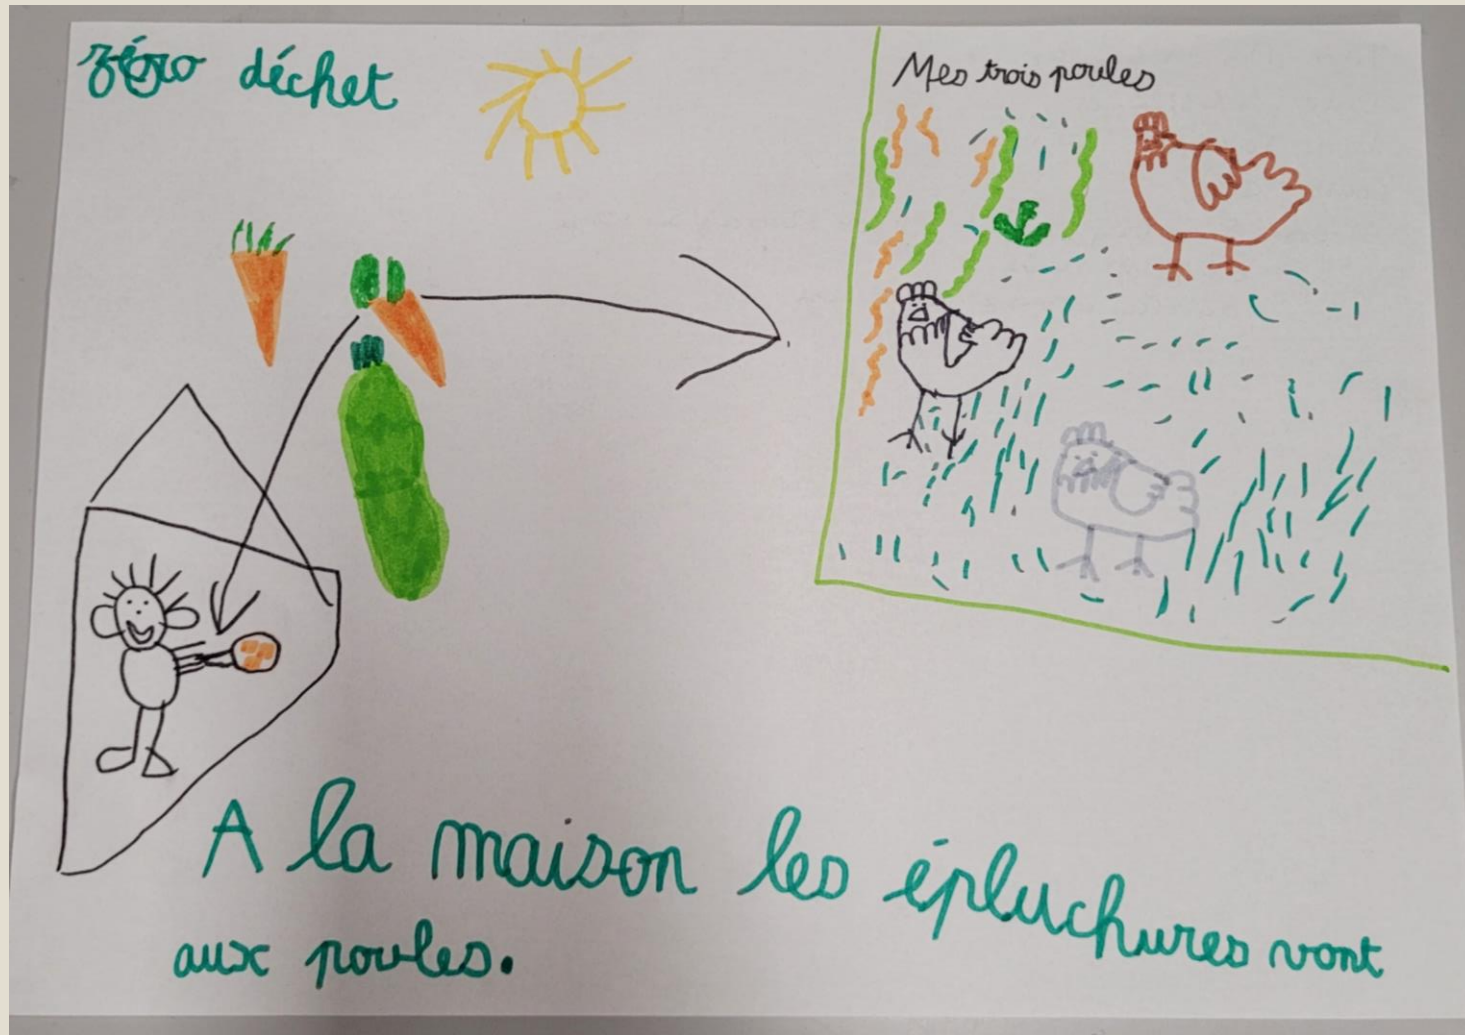 zéro déchet
Mes trois poules
A la maison les épluchures vont
aux poules.